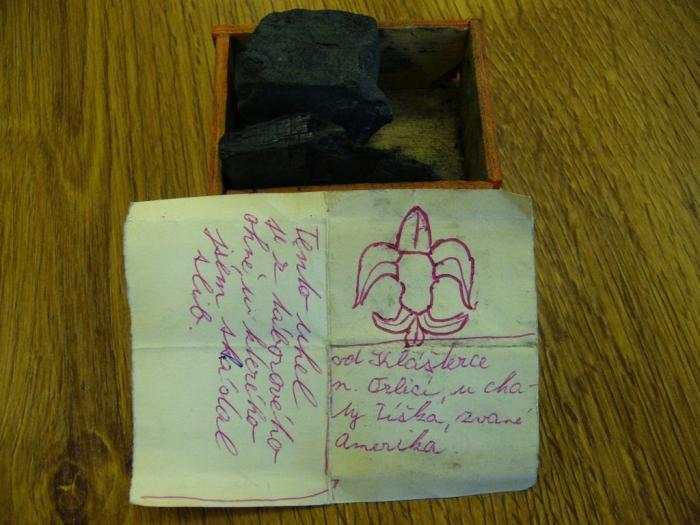 Tento uhel
je z táborového
ohně, u kterého
jsem skládal
slib.
od Klášterce
n. Orlicí, u cha-
ty Tíška, zvané
Amerika.